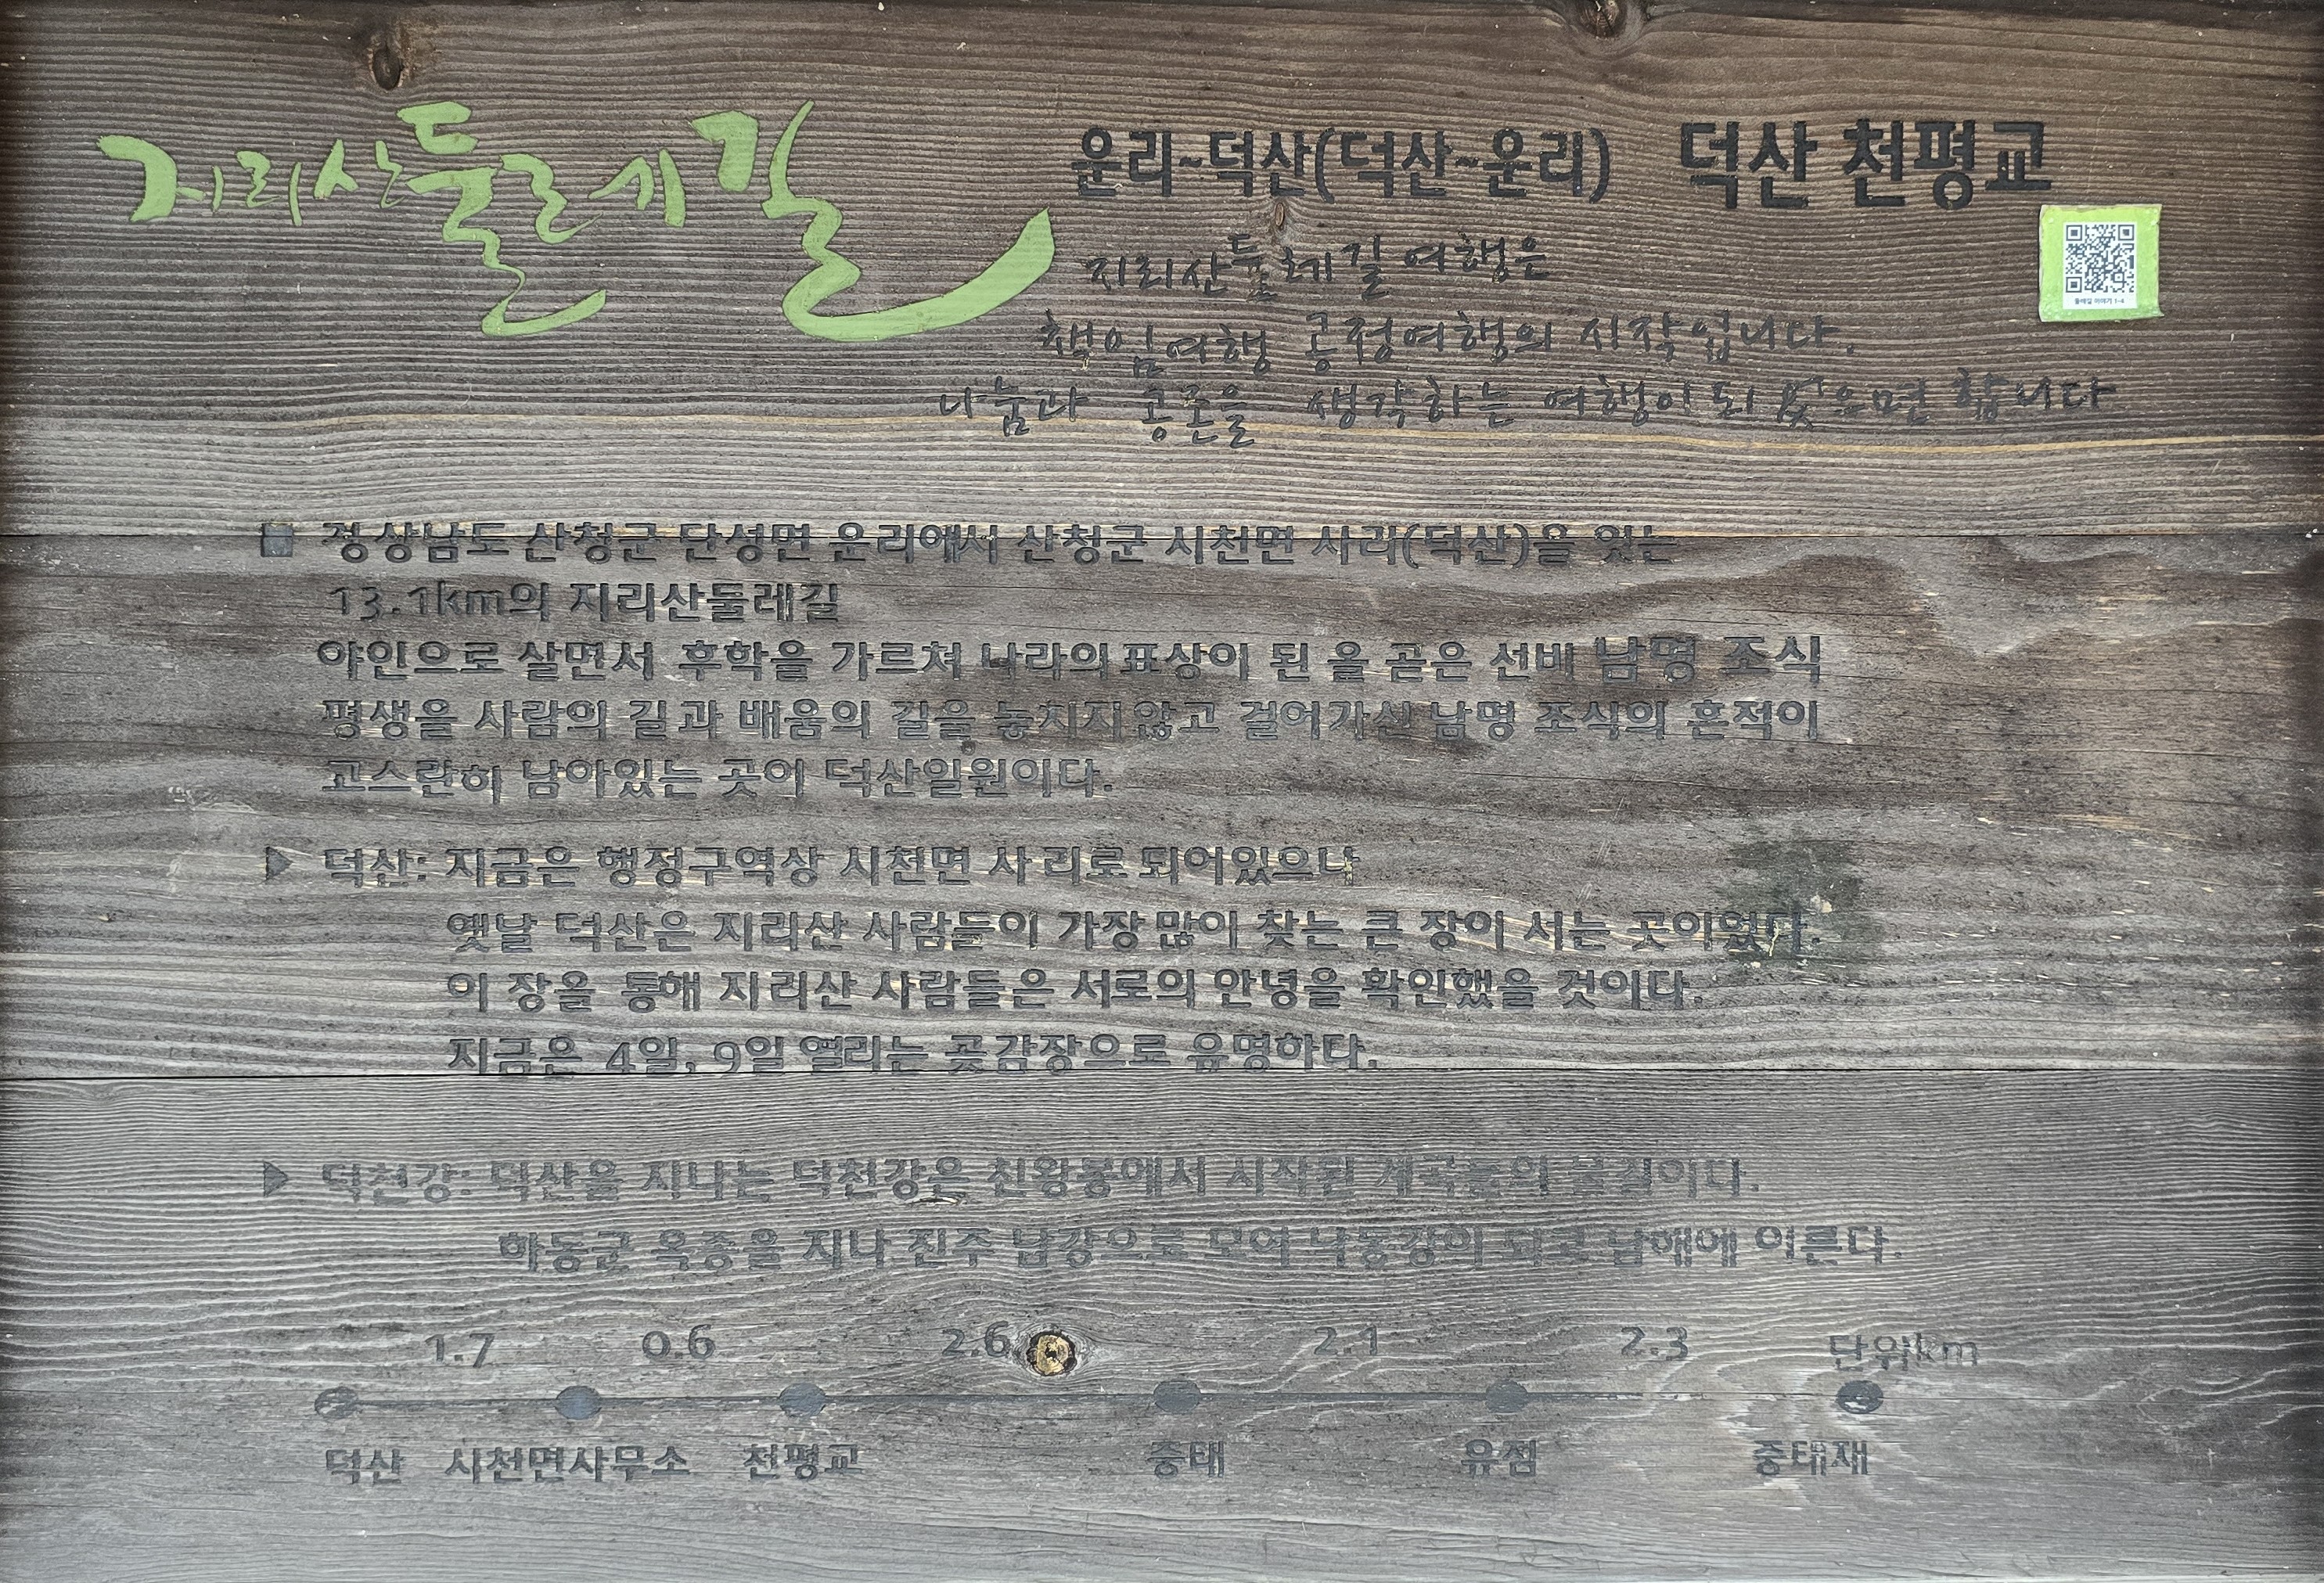 지리산둘레길
운리~덕산(덕산~운리) 덕산 천평교
지리산둘레길 여행은
책임여행 공정여행의 시작입니다.
나눔과 공존을 생각하는 여행이 되었으면 합니다
둘레길 이야기 1-4
■ 경상남도 산청군 단성면 운리에서 산청군 시천면 사리(덕산)을 잇는
13.1km의 지리산둘레길
야인으로 살면서 후학을 가르쳐 나라의 표상이 된 올 곧은 선비 남명 조식
평생을 사람의 길과 배움의 길을 놓치지않고 걸어가신 남명 조식의 흔적이
고스란히 남아있는 곳이 덕산일원이다.
▶ 덕산: 지금은 행정구역상 시천면 사리로 되어있으나
옛날 덕산은 지리산 사람들이 가장 많이 찾는 큰 장이 서는 곳이었다.
이 장을 통해 지리산 사람들은 서로의 안녕을 확인했을 것이다.
지금은 4일, 9일 열리는 곶감장으로 유명하다.
▶ 덕천강: 덕산을 지나는 덕천강은 천왕봉에서 시작된 계곡들의 물길이다.
하동군 옥종을 지나 진주 남강으로 모여 낙동강이 되고 남해에 이른다.
1.7 0.6 2.6 2.1 2.3 단위km
덕산 시천면사무소 천평교 중태 유점 중태재